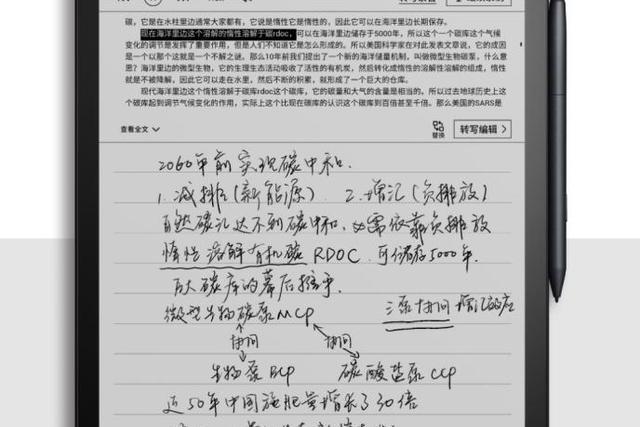 碳，它是在水柱里边通常大家都有，它说是惰性它是惰性的，因此它可以在海洋里边长期保存。
现在海洋里边这个溶解的惰性溶解于碳rdoc，可以在海洋里储存于5000年，所以这个一个碳库这个气候
变化的调节是发挥了重要作用，但是人们不知道它是怎么形成的。所以美国科学家在对此发表文章说，它的成因
是一个以那个这就是一个不解之谜。那么10年前我们提出了一个新的海洋储量机制，叫做微型生物碳泵，什么意
思？海洋里边的微型生物，它的生理生态活动吸收了活性的有机炭，然后转化成惰性的溶解性溶解的组成，惰性
就是不被降解，因此它可以走在水里，然后不断的积累，就形成了一个巨大的仓库。
现代海洋里边这个惰性溶解于碳库rdoc这个碳库，它的碳量和大气的含量是相当的。所以过去地球历史上这
个碳库起到调节气候变化的作用，实际上这个比现在碳库的认识这个碳库到百倍甚至千倍。那么美国的SARS是
查看全文
替换
转写编辑
2060年前实现碳中和.
1. 减排(新能源) 2. 增汇(负排放)
自然碳汇达不到碳中和，必需依靠负排放
惰性溶解有机碳 RDOC. 可储存5000年.
巨大碳库的幕后推手.
微型生物碳泵MCP
三泵协同 增汇效应
协同 协同
生物泵 BCP 碳酸盐泵 CCP
近50年中国施肥量增长了30倍